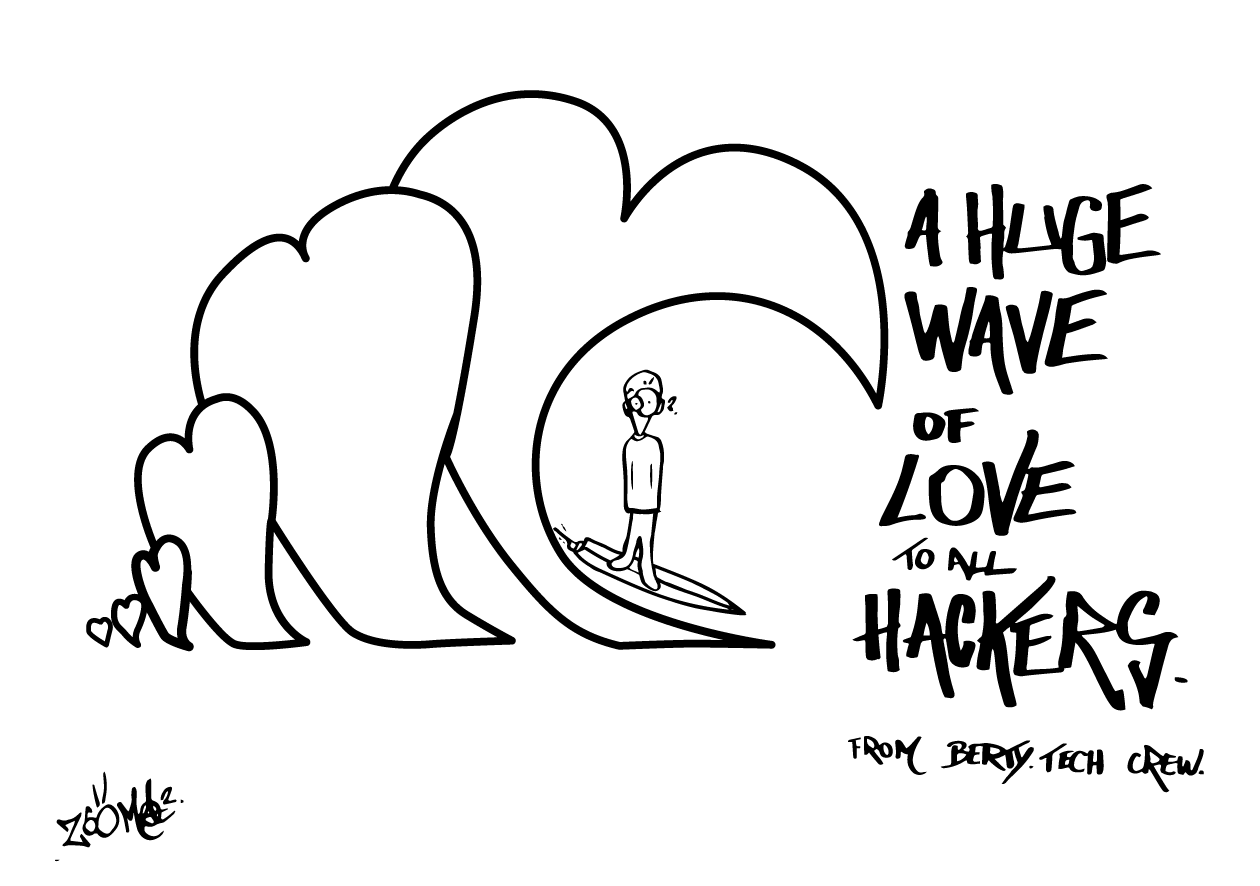 A HUGE
WAVE
OF
LOVE
TO ALL
HACKERS.
FROM BERTY.TECH CREW.
?.